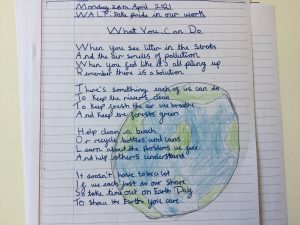 Monday 26th April 2021
WALT: take pride in our work
What You Can Do
When you see litter in the streets
And the air smells of pollution
When you feel like it's all piling up
Remember there is a solution
There's something each of us can do
To keep the rivers clean
To keep fresh the air we breathe
And keep the forests green
Help clean a beach
Or recycle bottles and cans
Learn about the problems we face
And help others understand
It doesn't have to be a lot
If we each just do our share
So take time out on Earth Day
To show the Earth you care